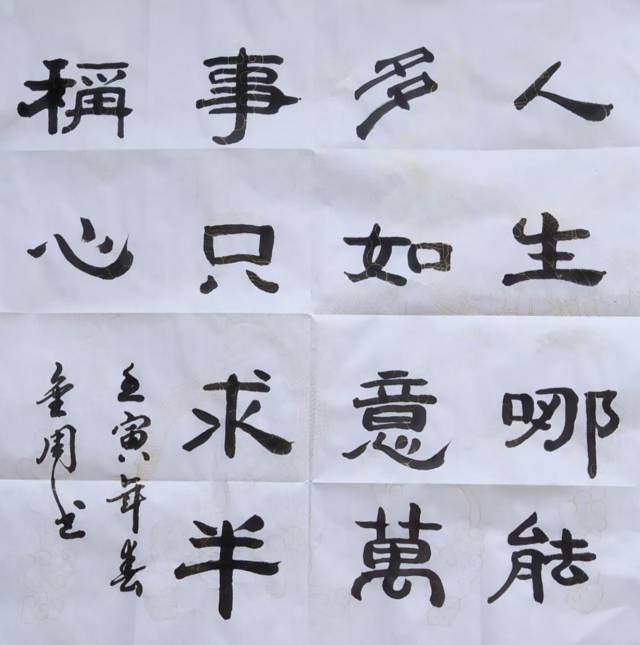 人生哪能
多如意萬
事只求半
稱心
壬寅年春
金周书